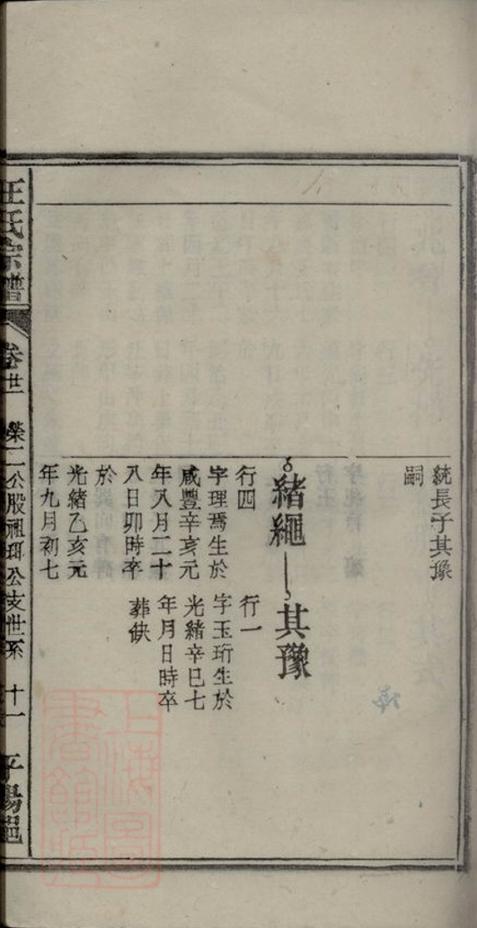 統長子其豫
嗣
緒繩
其豫
行四
字理焉生於
咸豐辛亥元
年八月二十
八日卯時卒
於
光緒乙亥元
年九月初七
行一
字玉珩生於
光緒辛巳七
年月日時卒
葬缺
王氏宗譜
卷廿一
榮二公股祖珥公支世系
十一
平陽邑
上海圖書館藏